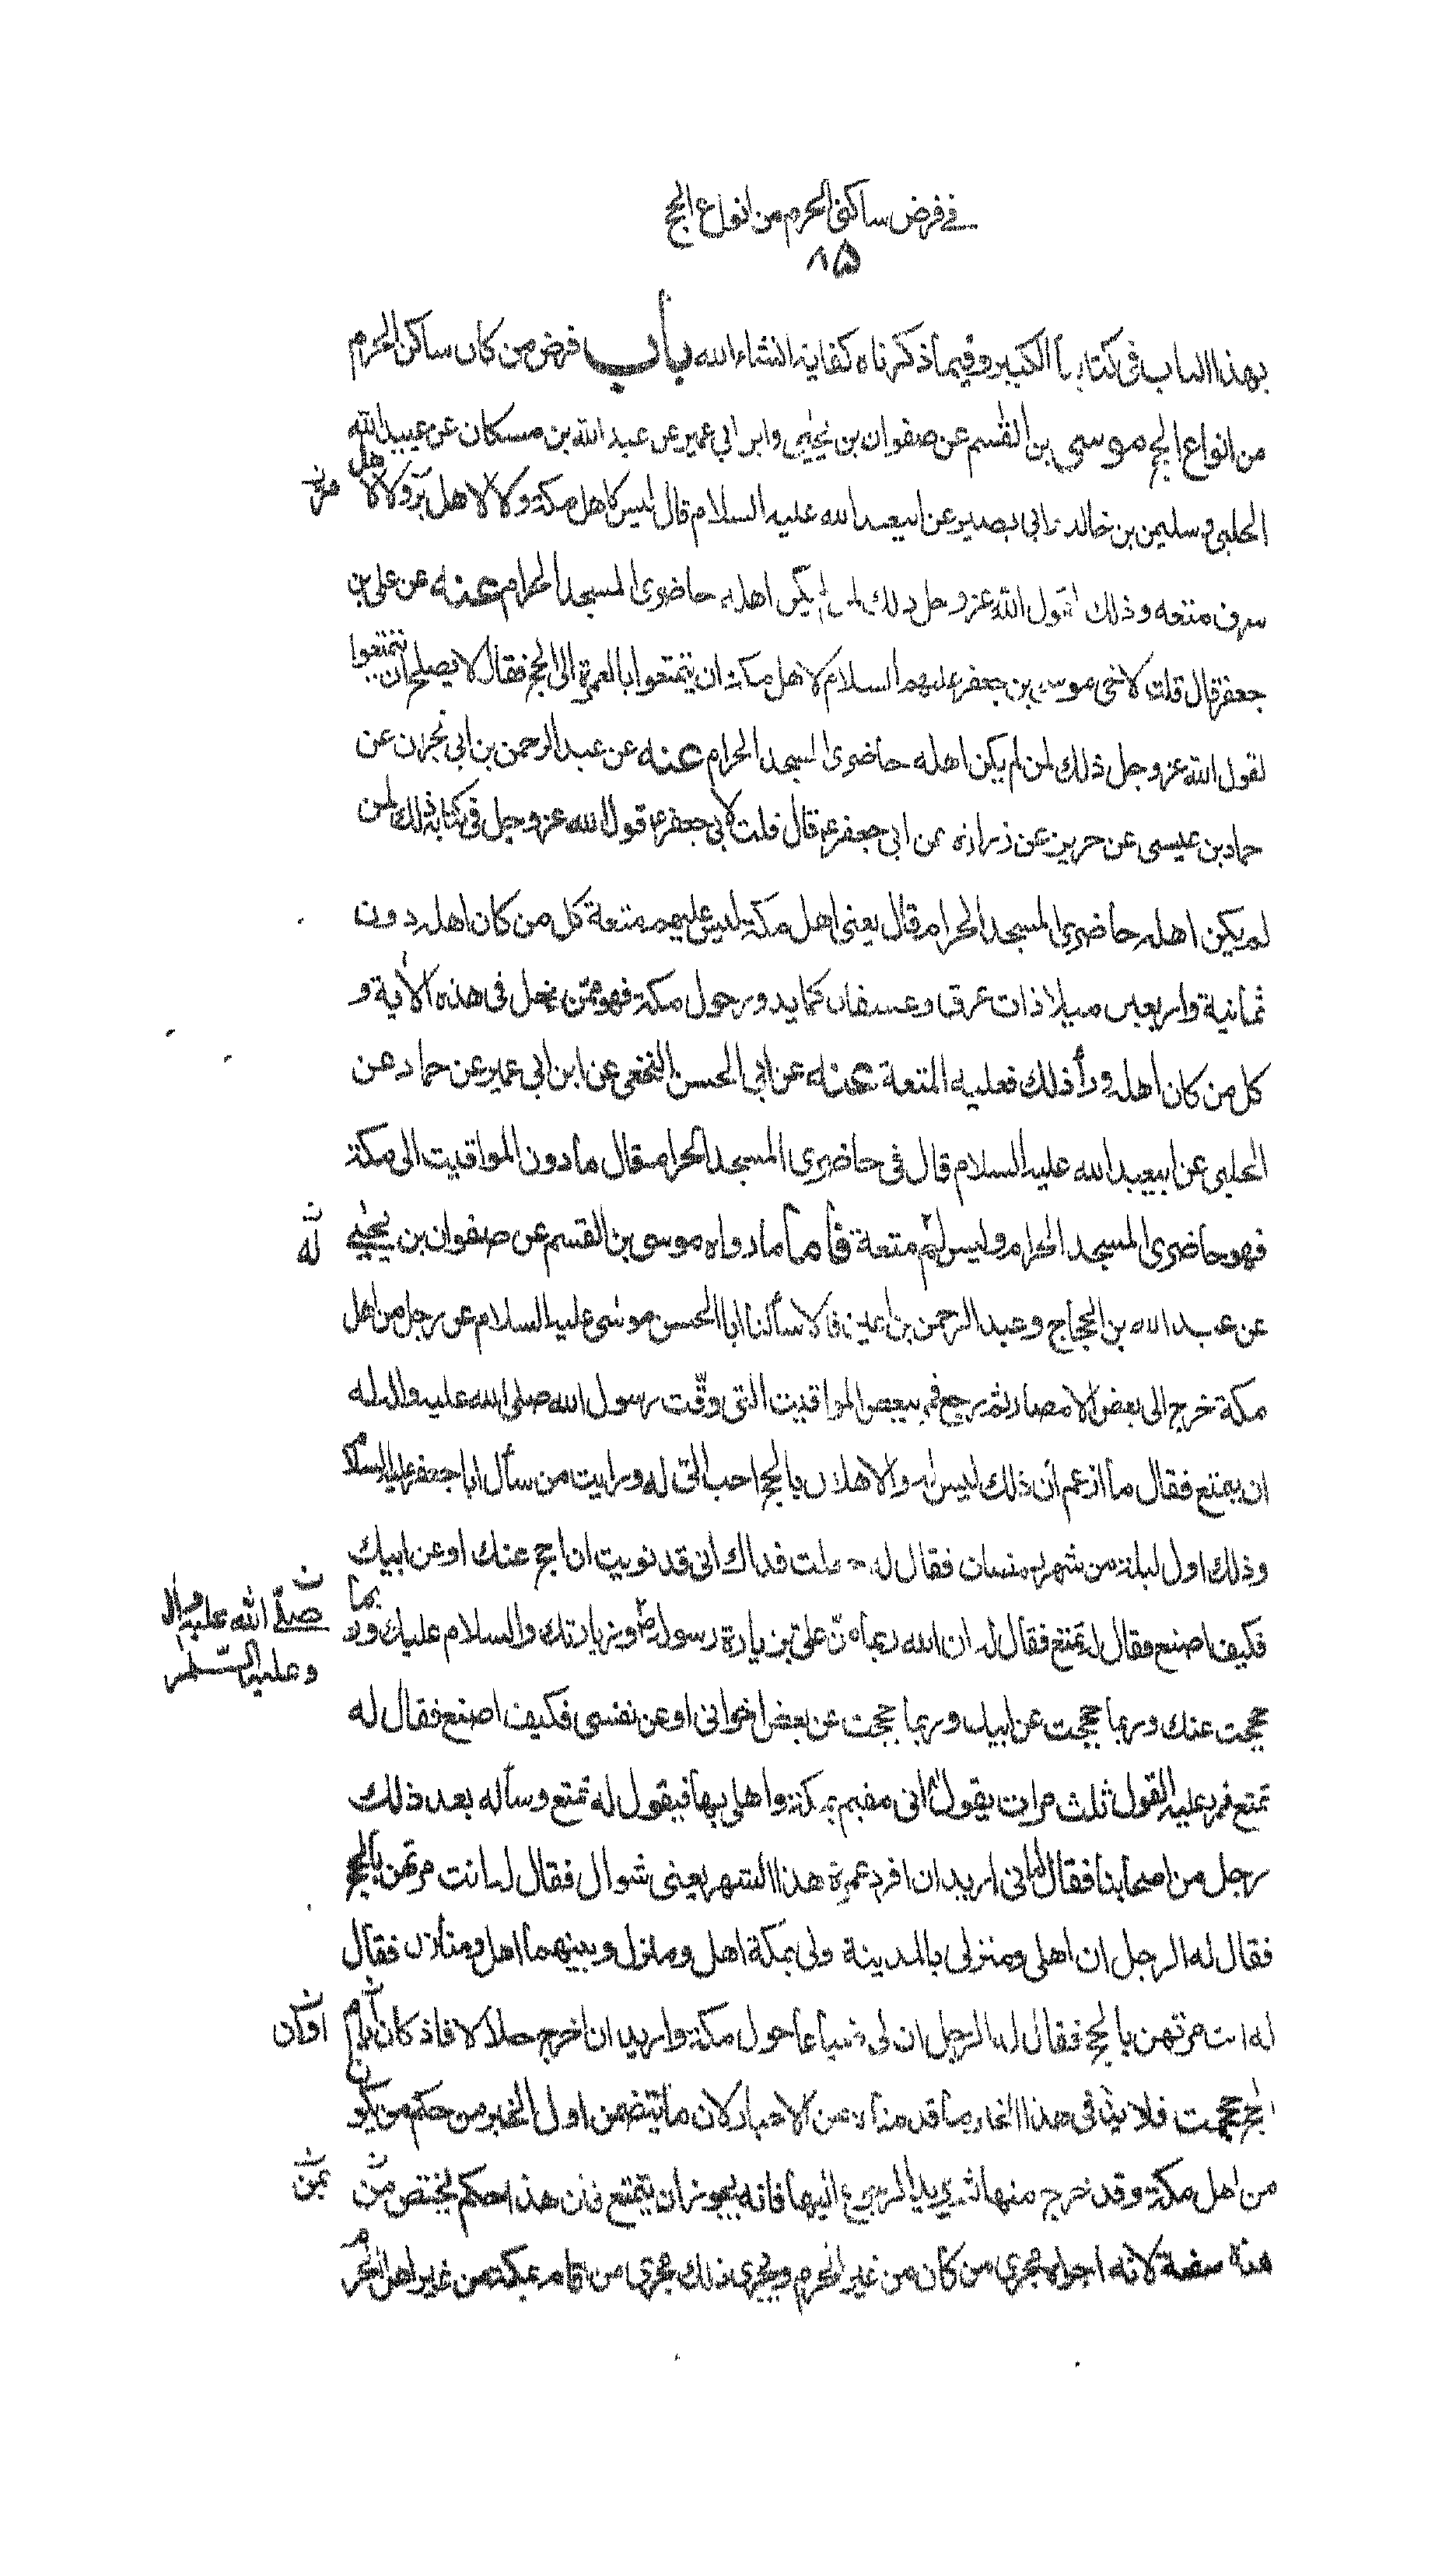 في فرض ساكني الحرم من انواع الحج
٨۵
بهذا الباب في كتابنا الكبير وفيما ذكرناه كفاية انشاء الله باب فرض من كان ساكن الحرم
من انواع الحج موسى بن القسم عن صفوان بن يحيى وابن ابي عمير عن عبد الله بن مسكان عن عبيد الله
الحلبي وسليمن بن خالد وابي بصير عن ابيعبد الله عليه السلام قال ليس لاهل مكة ولا لاهل مرّ ولا لاهل
سرف متعه وذلك لقول الله عز وجل ذلك لمن لم يكن اهله حاضرى المسجد الحرام عنه عن على بن
جعفر قال قلت لاخى موسى بن جعفر عليهما السلام لاهل مكة ان يتمتعوا بالعمرة الى الحج فقال لا يصلح ان يتمتعوا
لقول الله عز وجل ذلك لمن لم يكن اهله حاضرى المسجد الحرام عنه عن عبد الرحمن بن ابي نجران عن
حماد بن عيسى عن حريز عن زرارة عن ابى جعفر ع قال قلت لابي جعفر ع قول الله عز وجل في كتابه ذلك لمن
لم يكن اهله حاضرى المسجد الحرام قال يعنى اهل مكة ليس عليهم متعة كل من كان اهله دون
ثمانية واربعين ميلا ذات عرق وعسفان كما يدور حول مكة فهو ممّن يدخل فى هذه الآية و
كل من كان اهله وراء ذلك فعليه المتعة عنه عن ابي الحسن النخعى عن ابن ابى عمير عن حماد عن
الحلبى عن ابيعبد الله عليه السلام قال فى حاضرى المسجد الحرام قال ما دون المواقيت الى مكة
فهو حاضرى المسجد الحرام وليس لهم متعة فأما ما رواه موسى بن القسم عن صفوان بن يحيى
له
عن عبد الله بن الحجاج وعبد الرحمن بن اعين قالا سألنا ابا الحسن موسى عليه السلام عن رجل من اهل
مكة خرج الى بعض الامصار ثم رجع فمر ببعض المواقيت التى وقّت رسول الله صلى الله عليه واله له
ان يتمتع فقال ما ازعم ان ذلك ليس له والاهلال بالحج احب الىّ له ورايت من سأل ابا جعفر عليه السلام
وذلك اول ليلة من شهر رمضان فقال له جعلت فداك انى قد نويت ان احج عنك او عن ابيك
فكيف اصنع فقال له تمتع فقال له ان الله ربما منّ علىّ بزيارة رسوله ص وزيارتك والسلام عليك وربما
صلّى الله عليه وال
وعليه السّلم
حججت عنك وربما حججت عن ابيك وربما حججت عن بعض اخوانى او عن نفسى فكيف اصنع فقال له
تمتع فرد عليه القول ثلث مرات يقول له انى مقيم بمكة واهلى بها فيقول له تمتع وسأله بعد ذلك
رجل من اصحابنا فقال له انى اريد ان افرد عمرة هذا الشهر يعنى شوال فقال له انت مرتهن بالحج
فقال له الرجل ان اهلى ومنزلى بالمدينة ولى بمكة اهل ومنزل وبينهما اهل ومنازل فقال
له انت مرتهن بالحج فقال له الرجل ان لى ضياعا حول مكة واريد ان اخرج حلالا فاذا كان ايام
الحج حججت فلا ينافى هذا الخبر ما قدمناه من الاخبار لان ما يتضمن اول الخبر من حكم من يكون
من اهل مكة وقد خرج منها ثم يريد الرجوع اليها فانه يجوز ان يتمتع فان هذا حكم يختص من
ممّن
لانه اجراه مجرى من كان من غير الحرم ويجرى ذلك مجرى من اقام بمكة من غير اهل الحرم